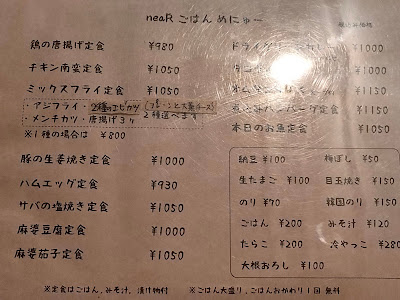 neaR ごはん めにゅー
税込み価格
鶏の唐揚げ定食 ¥980
チキン南蛮定食 ¥1050
ミックスフライ定食 ¥1050
・アジフライ・
・メンチカツ・唐揚げより 2種選べます
※1種の場合は ¥800
豚の生姜焼き定食 ¥1000
ハムエッグ定食 ¥930
サバの塩焼き定食 ¥1050
麻婆豆腐定食 ¥1000
麻婆茄子定食 ¥1050
ドライ ¥1000
¥1000
¥1150
煮込みハンバーグ定食 ¥1150
本日のお魚定食 ¥1050
納豆 ¥100 梅ぼし ¥50
生たまご ¥100 目玉焼き ¥150
のり ¥70 韓国のり ¥150
ごはん ¥200 みそ汁 ¥120
たらこ ¥200 冷やっこ ¥280
大根おろし ¥100
※定食はごはん、みそ汁、漬け物付 ※ごはん大盛り、ごはんおかわり1回 無料